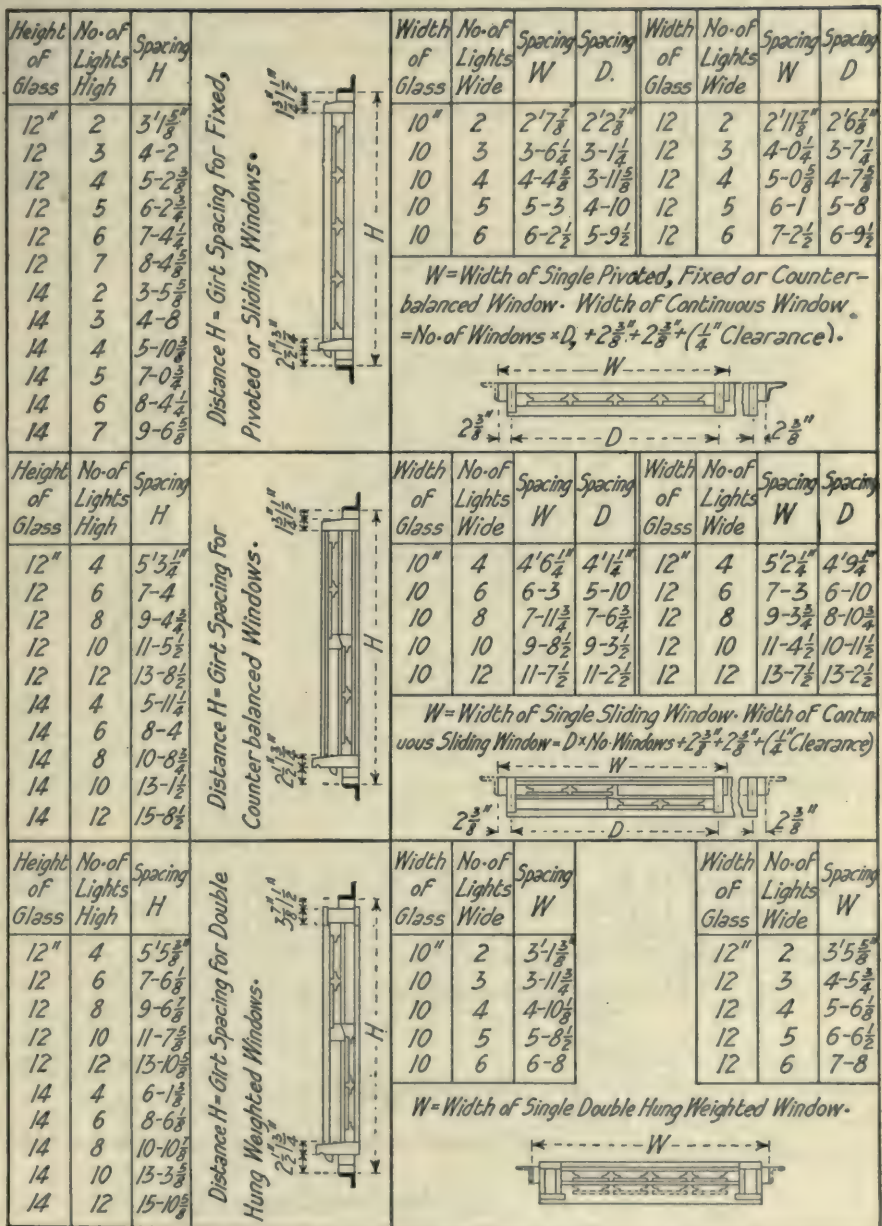 Height of Glass | No. of Lights High | Spacing H
12" | 2 | 3'1 5/8"
12 | 3 | 4-2
12 | 4 | 5-2 3/8
12 | 5 | 6-2 3/4
12 | 6 | 7-4 1/4
12 | 7 | 8-4 5/8
14 | 2 | 3-5 5/8
14 | 3 | 4-8
14 | 4 | 5-10 3/8
14 | 5 | 7-0 3/4
14 | 6 | 8-4 1/4
14 | 7 | 9-6 5/8
Distance H = Girt Spacing for Fixed,
Pivoted or Sliding Windows.
1 3/4" 1 1/2"
H
2 1/2" 1 3/4"
Width of Glass | No. of Lights Wide | Spacing W | Spacing D. | Width of Glass | No. of Lights Wide | Spacing W | Spacing D
10" | 2 | 2'7 7/8" | 2'2 7/8" | 12 | 2 | 2'11 7/8" | 2'6 7/8"
10 | 3 | 3-6 1/4 | 3-1 1/4 | 12 | 3 | 4-0 1/4 | 3-7 1/4
10 | 4 | 4-4 5/8 | 3-11 5/8 | 12 | 4 | 5-0 5/8 | 4-7 5/8
10 | 5 | 5-3 | 4-10 | 12 | 5 | 6-1 | 5-8
10 | 6 | 6-2 1/2 | 5-9 1/2 | 12 | 6 | 7-2 1/2 | 6-9 1/2
W = Width of Single Pivoted, Fixed or Counter-
balanced Window. Width of Continuous Window
= No. of Windows × D, + 2 3/8" + 2 3/8" + (1/4" Clearance).
W
2 3/8" D 2 3/8"
Height of Glass | No. of Lights High | Spacing H
12" | 4 | 5'3 1/4"
12 | 6 | 7-4
12 | 8 | 9-4 3/4
12 | 10 | 11-5 1/2
12 | 12 | 13-8 1/2
14 | 4 | 5-11 1/4
14 | 6 | 8-4
14 | 8 | 10-8 3/4
14 | 10 | 13-1 1/2
14 | 12 | 15-8 1/2
Distance H = Girt Spacing for
Counterbalanced Windows.
1 3/4" 1 1/2"
H
2 1/2" 1 3/4"
Width of Glass | No. of Lights Wide | Spacing W | Spacing D | Width of Glass | No. of Lights Wide | Spacing W | Spacing D
10" | 4 | 4'6 1/4" | 4'1 1/4" | 12" | 4 | 5'2 1/4" | 4'9 1/4"
10 | 6 | 6-3 | 5-10 | 12 | 6 | 7-3 | 6-10
10 | 8 | 7-11 3/4 | 7-6 3/4 | 12 | 8 | 9-3 3/4 | 8-10 3/4
10 | 10 | 9-8 1/2 | 9-3 1/2 | 12 | 10 | 11-4 1/2 | 10-11 1/2
10 | 12 | 11-7 1/2 | 11-2 1/2 | 12 | 12 | 13-7 1/2 | 13-2 1/2
W = Width of Single Sliding Window. Width of Contin-
uous Sliding Window = D × No. Windows + 2 3/8" + 2 3/8" + (1/4" Clearance)
W
2 3/8" D 2 3/8"
Height of Glass | No. of Lights High | Spacing H
12" | 4 | 5'5 3/8"
12 | 6 | 7-6 1/8
12 | 8 | 9-6 7/8
12 | 10 | 11-7 5/8
12 | 12 | 13-10 5/8
14 | 4 | 6-1 3/8
14 | 6 | 8-6 1/8
14 | 8 | 10-10 7/8
14 | 10 | 13-3 5/8
14 | 12 | 15-10 5/8
Distance H = Girt Spacing for Double
Hung Weighted Windows.
3 7/8" 1 1/2"
H
2 1/2" 1 3/4"
Width of Glass | No. of Lights Wide | Spacing W
10" | 2 | 3'-1 3/8"
10 | 3 | 3-11 3/4
10 | 4 | 4-10 1/8
10 | 5 | 5-8 1/2
10 | 6 | 6-8
Width of Glass | No. of Lights Wide | Spacing W
12" | 2 | 3'5 5/8"
12 | 3 | 4-5 3/4
12 | 4 | 5-6 1/8
12 | 5 | 6-6 1/2
12 | 6 | 7-8
W = Width of Single Double Hung Weighted Window.
W